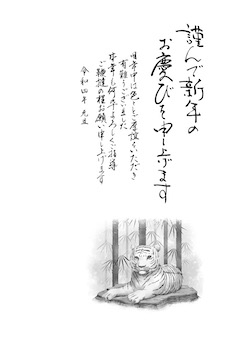 謹んで新年の
お慶びを申し上げます
旧年中は色々とご厚誼をいただき
有難うございました
本年も何卒よろしくご指導
ご鞭撻の程お願い申し上げます
令和四年 元旦